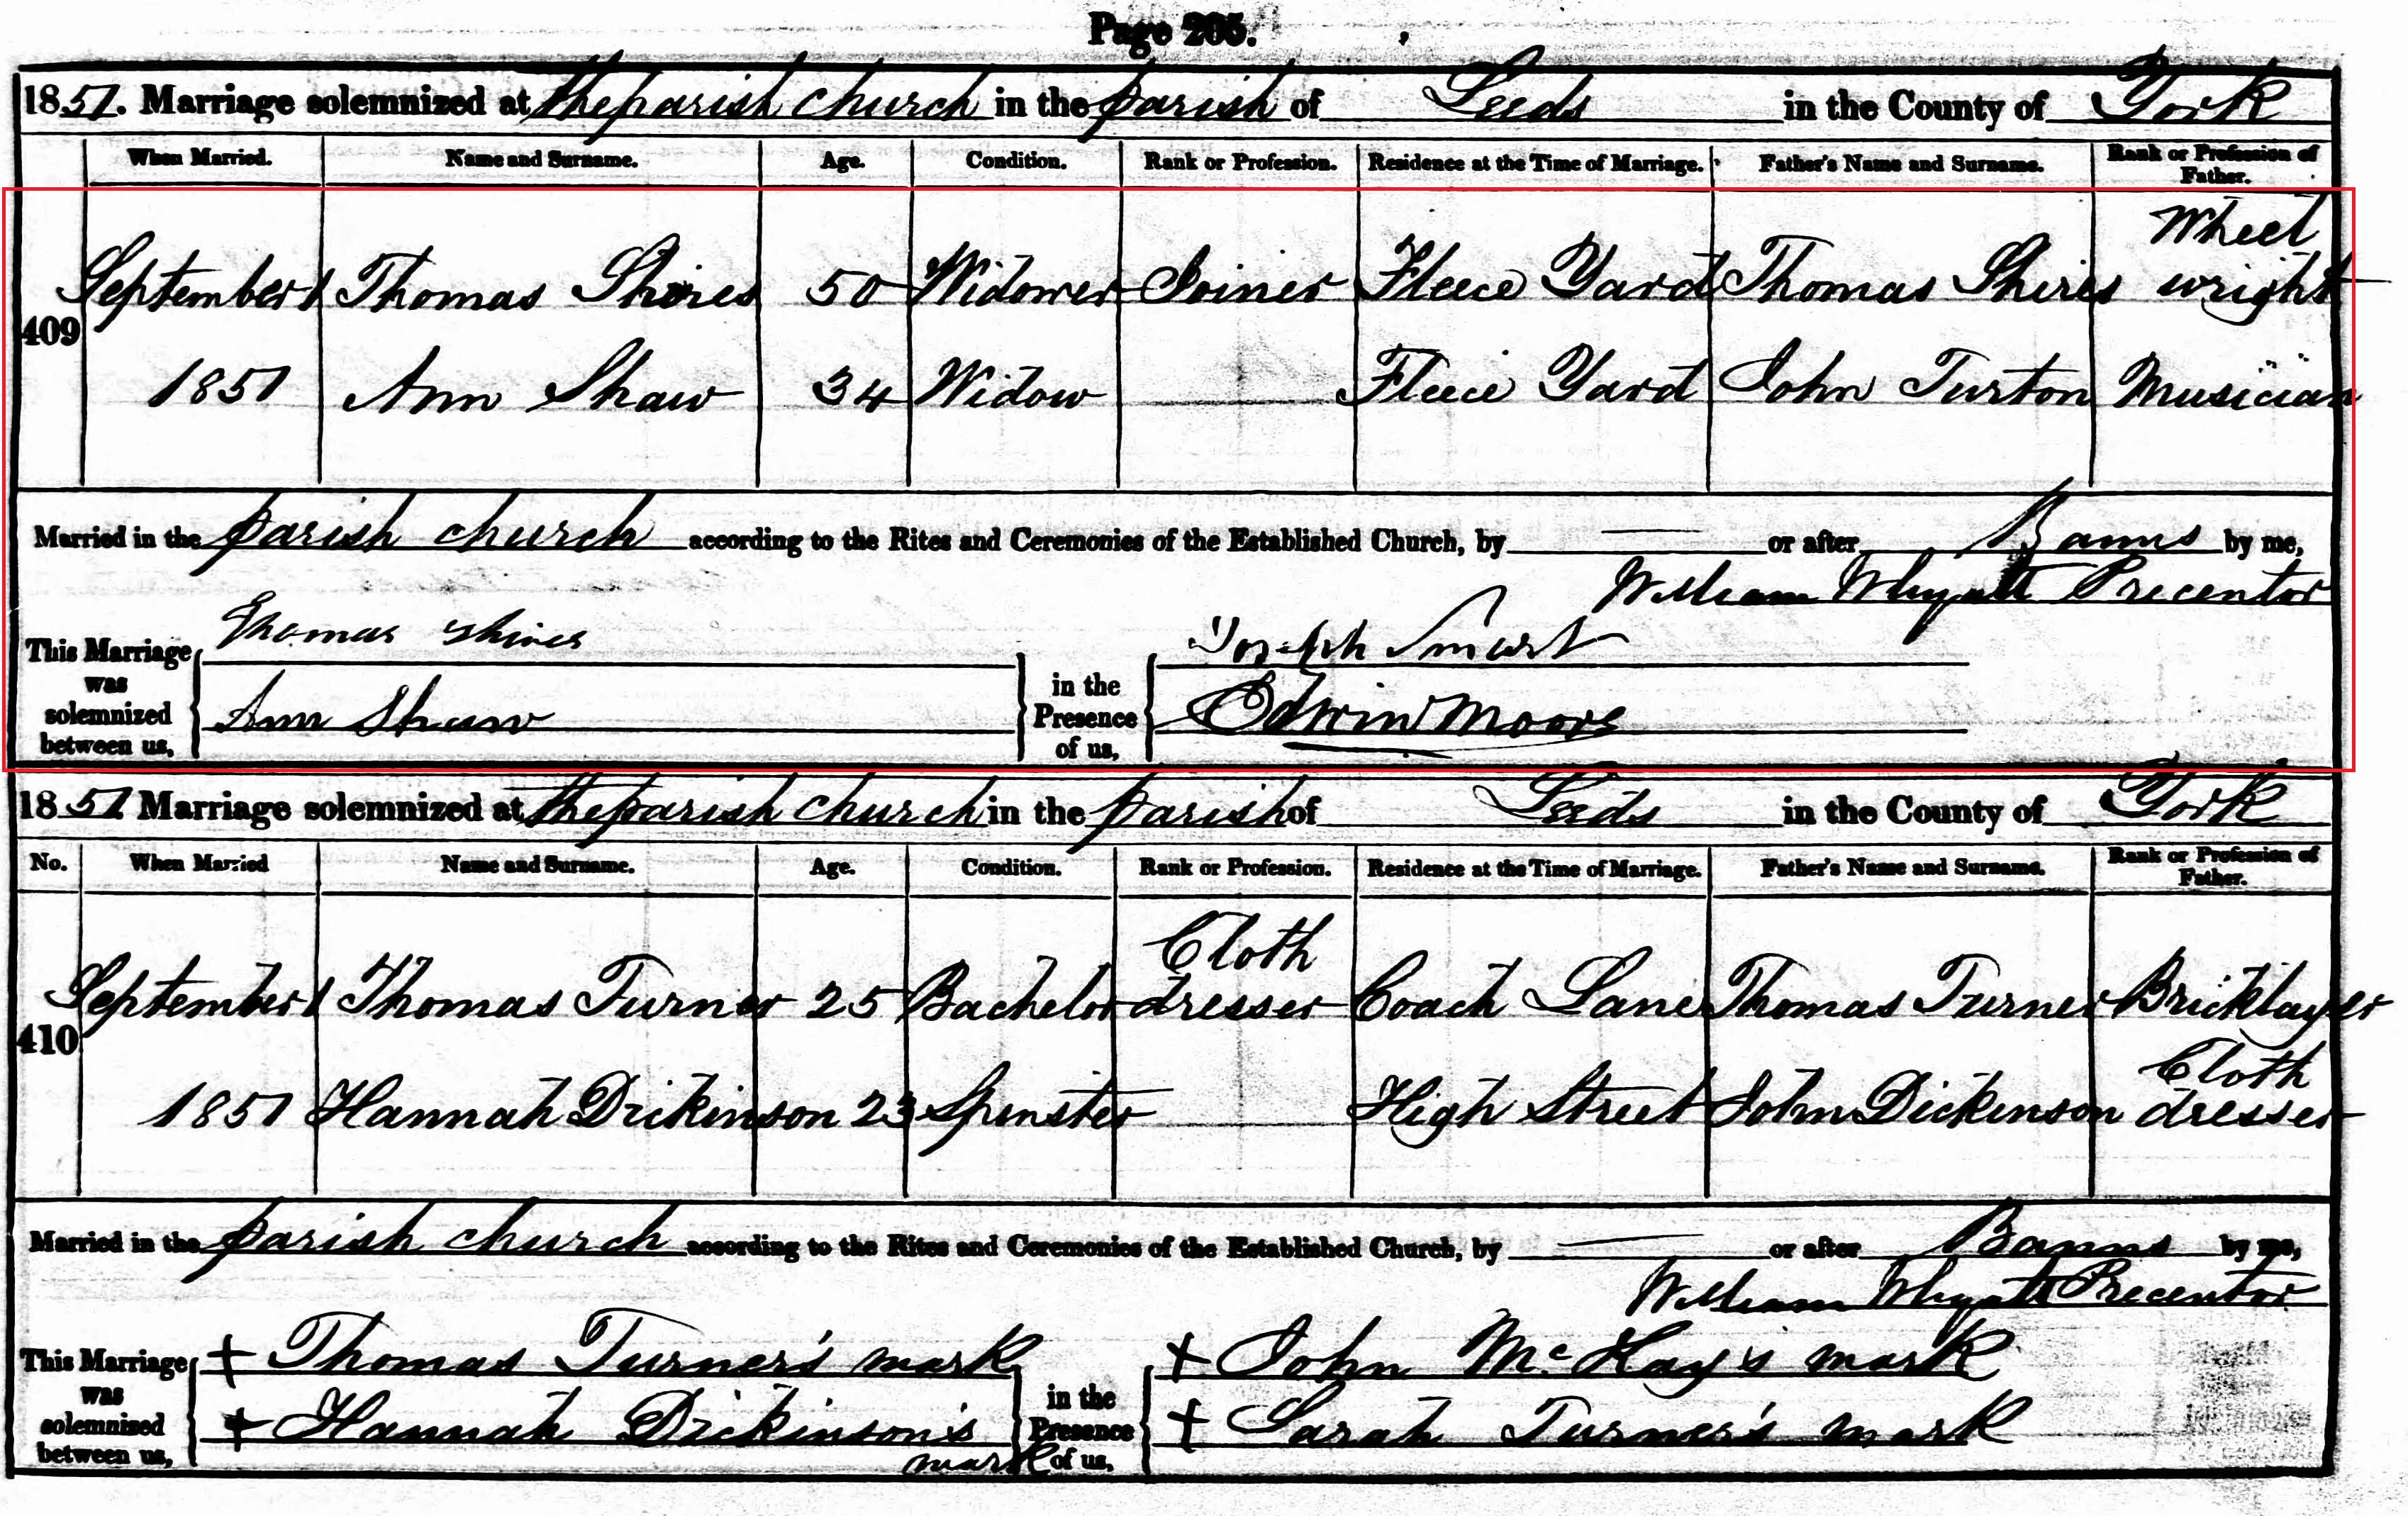 Page 205.
1851. Marriage solemnized at the parish church in the parish of Leeds in the County of York
When Married. Name and Surname. Age. Condition. Rank or Profession. Residence at the Time of Marriage. Father's Name and Surname. Rank or Profession of Father.
409 September 1 Thomas Shires 50 Widower Joiner Fleece Yard Thomas Shires Wheel wright
1851 Ann Shaw 34 Widow Fleece Yard John Turton Musician
Married in the parish church according to the Rites and Ceremonies of the Established Church, by or after Banns by me,
William Whyatt Precentor
This Marriage was solemnized between us, Thomas Shires in the Presence of us, Joseph Smart
Ann Shaw Edwin Moore
1851 Marriage solemnized at the parish church in the parish of Leeds in the County of York
No. When Married Name and Surname. Age. Condition. Rank or Profession. Residence at the Time of Marriage. Father's Name and Surname. Rank or Profession of Father.
410 September 1 Thomas Turner 25 Bachelor Cloth dresser Coach Lane Thomas Turner Bricklayer
1851 Hannah Dickinson 23 Spinster High Street John Dickinson Cloth dresser
Married in the parish church according to the Rites and Ceremonies of the Established Church, by or after Banns by me,
William Whyatt Precentor
This Marriage was solemnized between us, + Thomas Turner's mark in the Presence of us, + John McHay's mark
+ Hannah Dickinson's mark + Sarah Turner's mark